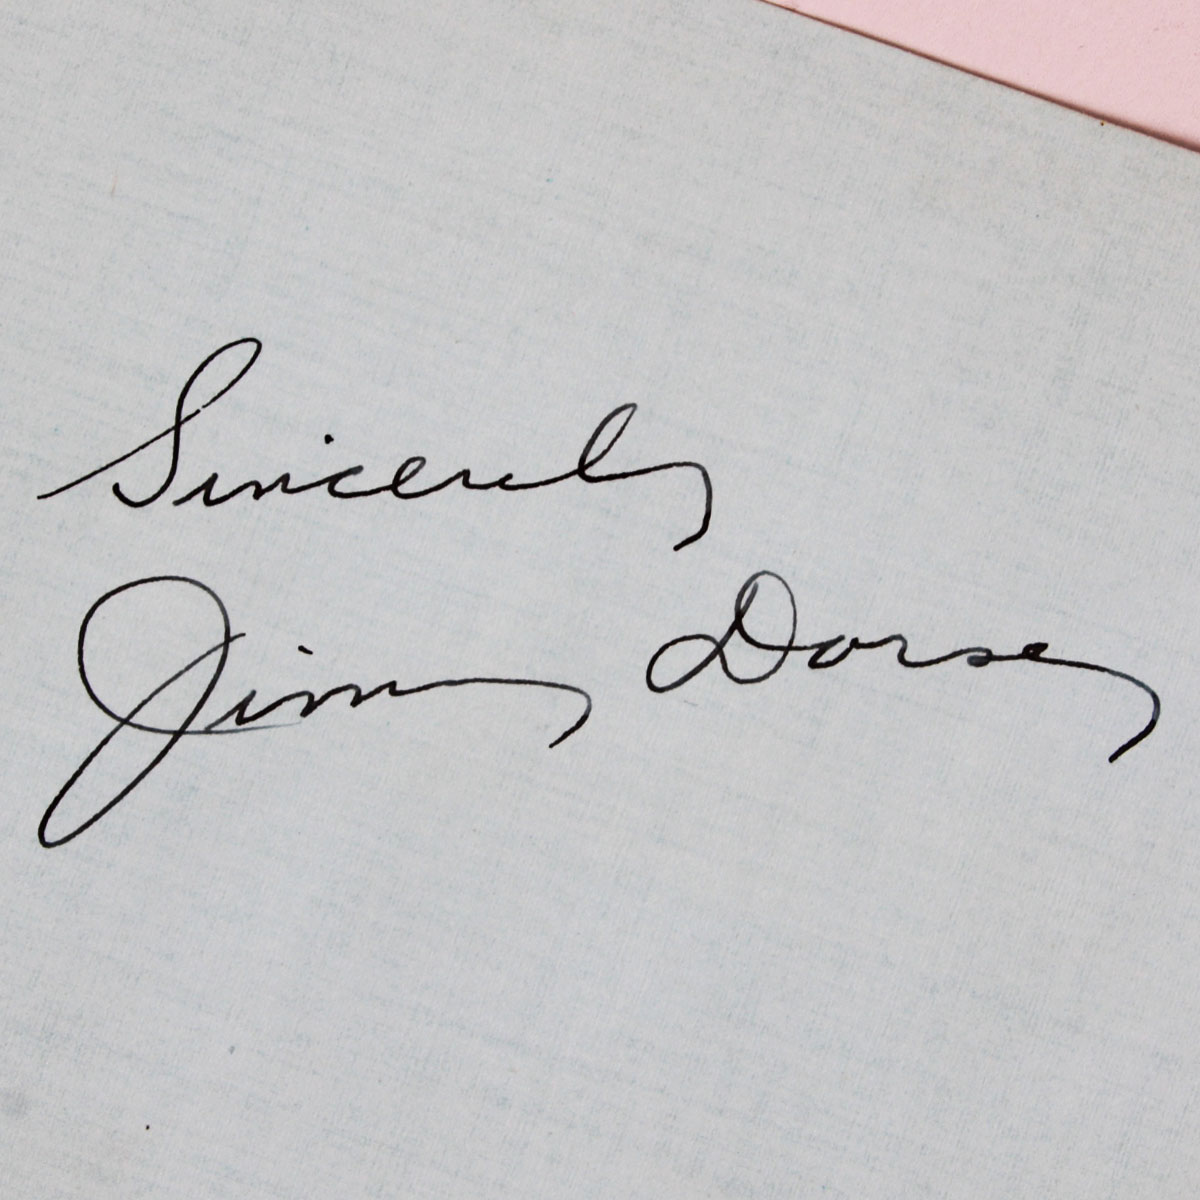 Sincerely
Jimmy Dorsey